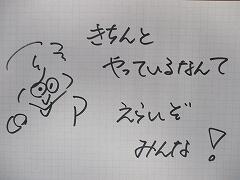 きちんと
やっているなんて
えらいぞ
みんな!
P